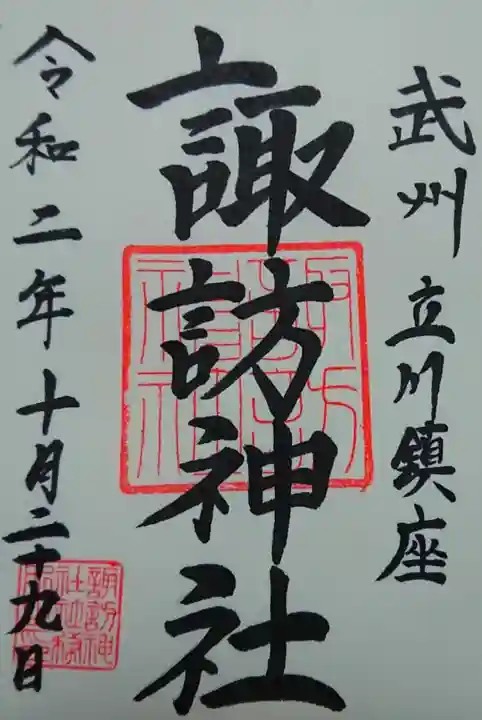 武州 立川鎮座
諏訪神社
令和二年十月二十九日
諏訪
神社